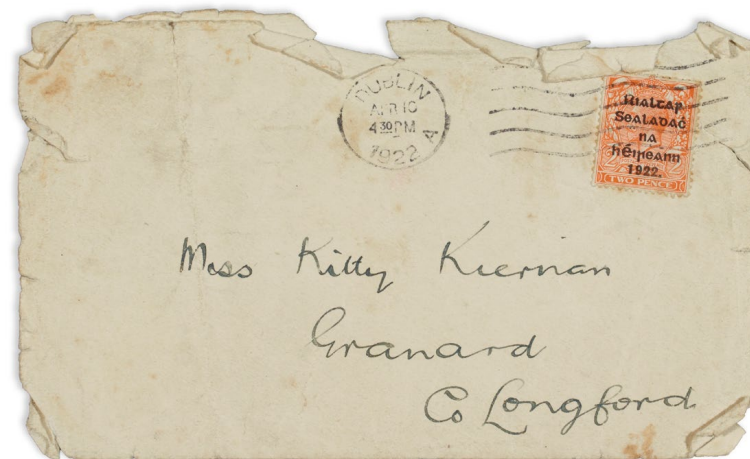 DUBLIN
APR 10
4 30 PM
1922 A
Rialtar
Sealadaċ
na
hÉireann
1922.
TWO PENCE
Miss Kitty Kiernan
Granard
Co Longford